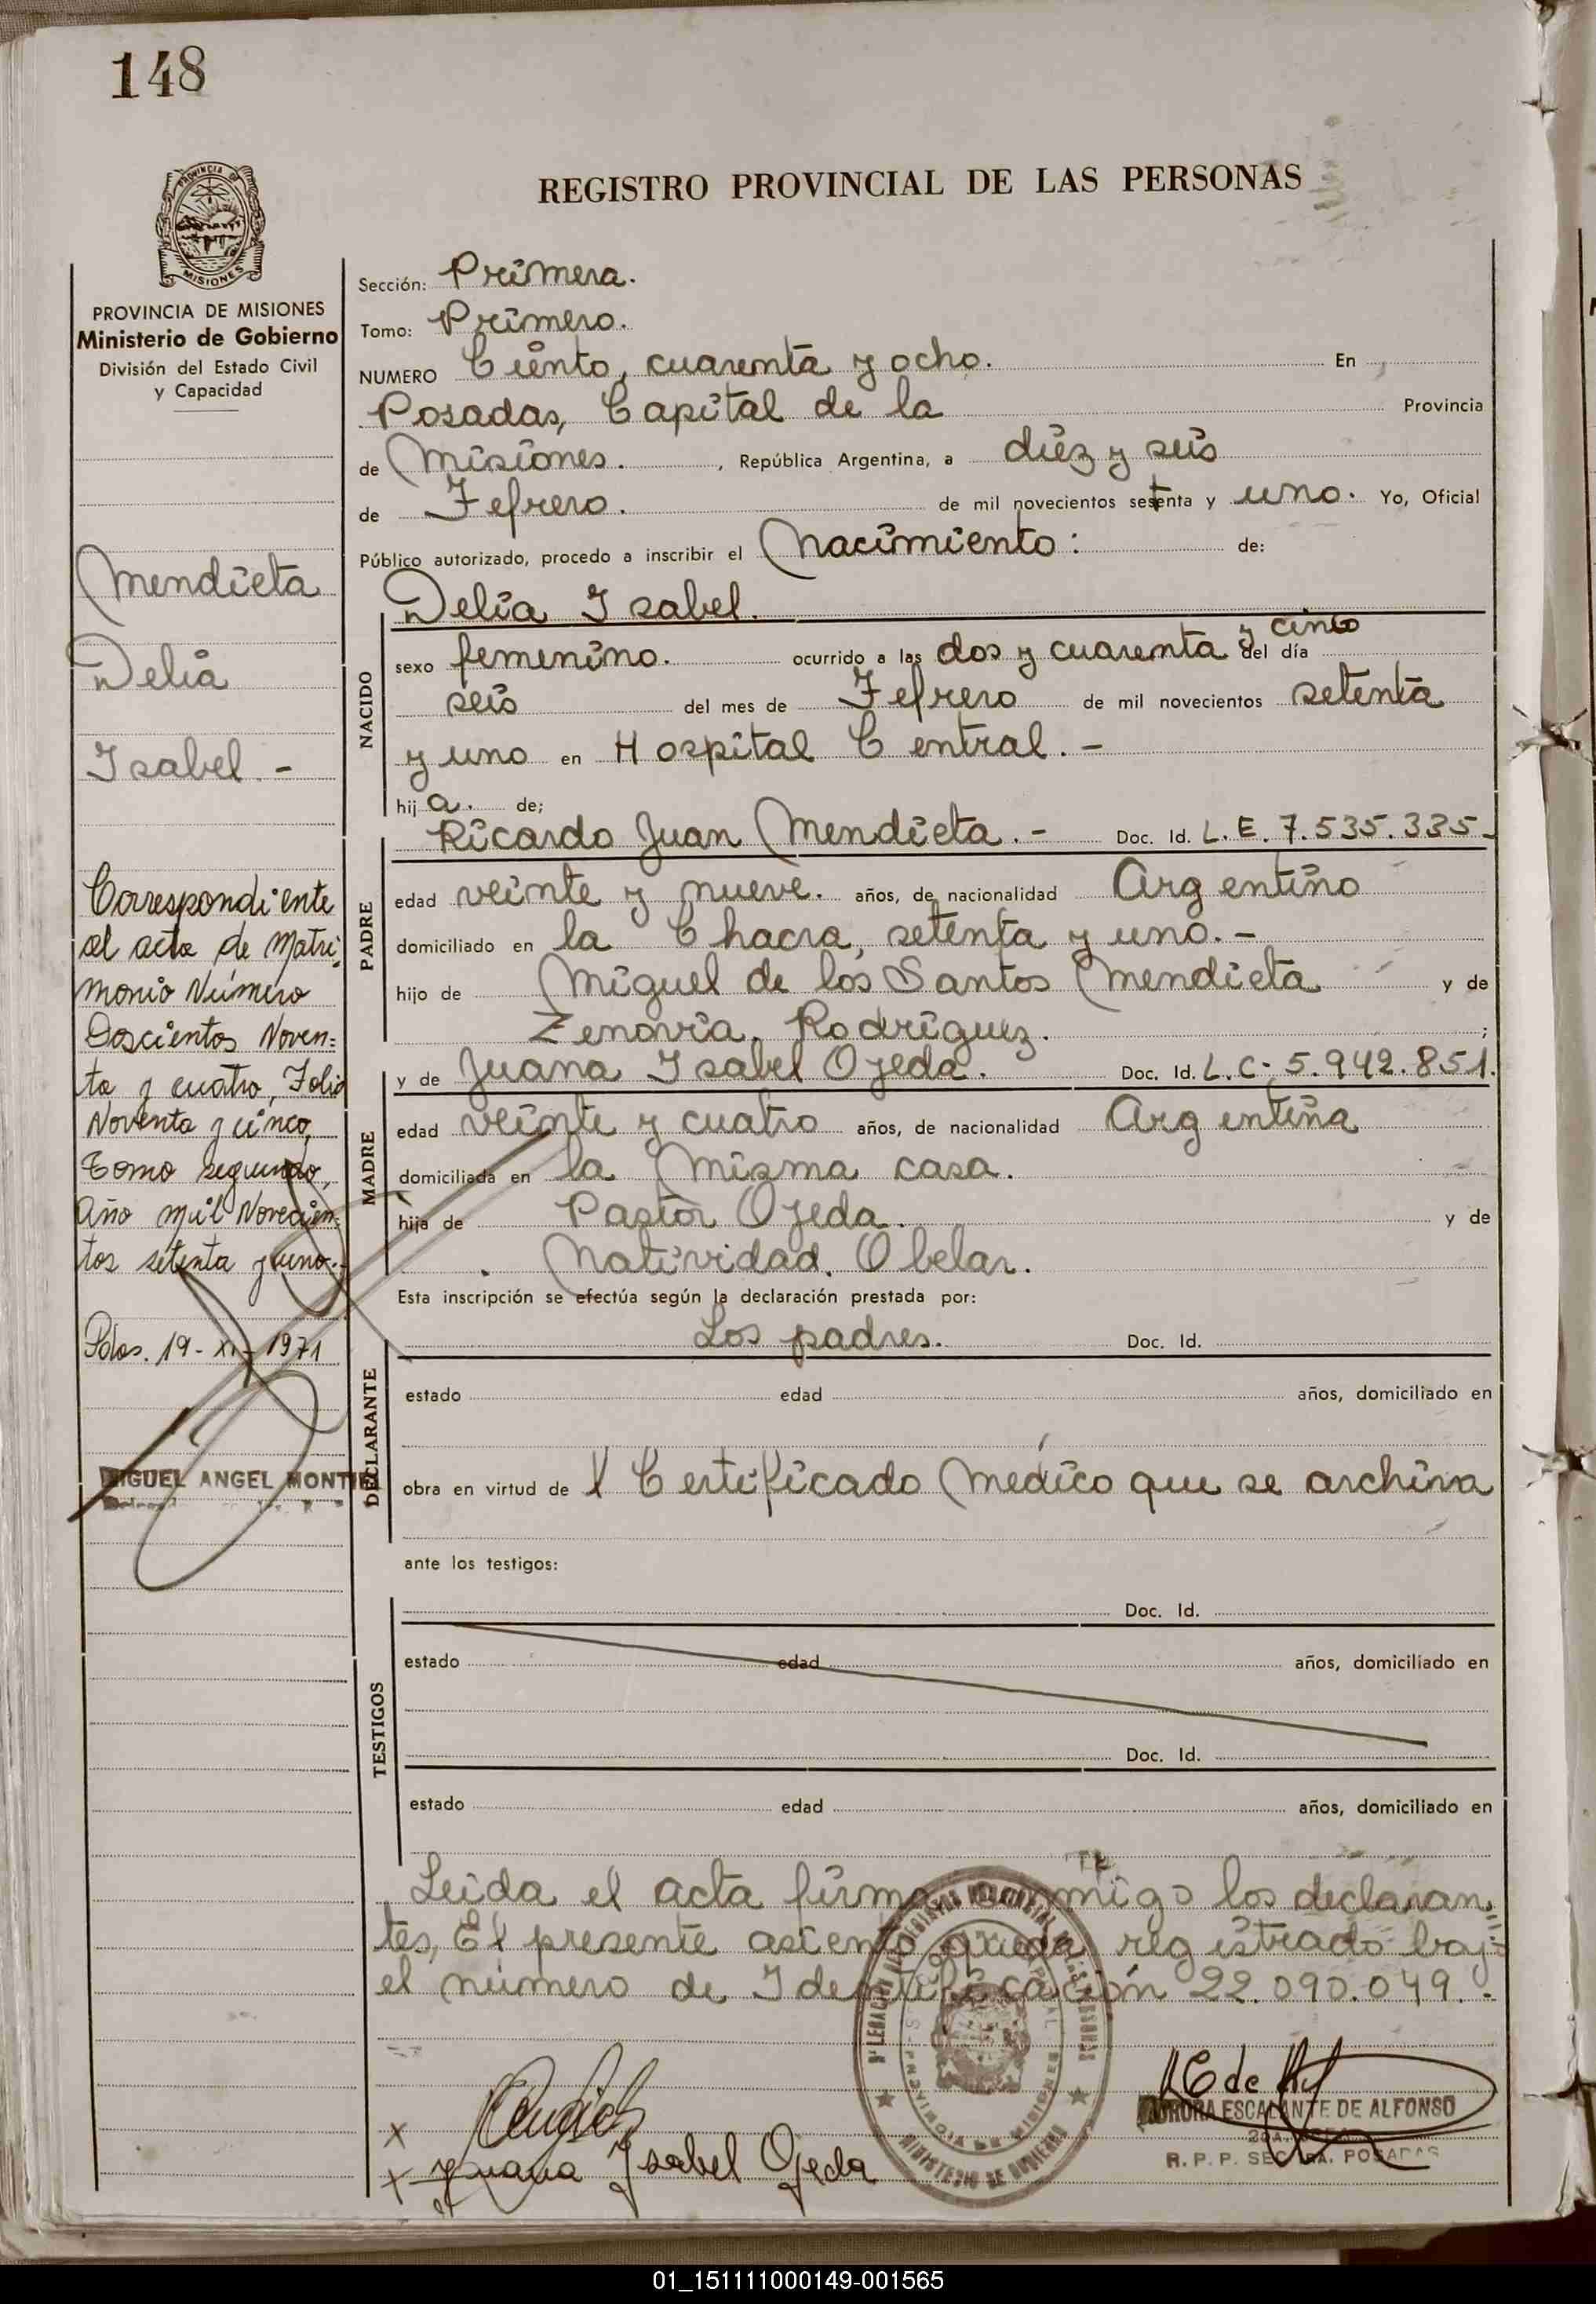 148
PROVINCIA DE
MISIONES
PROVINCIA DE MISIONES
Ministerio de Gobierno
División del Estado Civil
y Capacidad
Mendieta
Delia
Isabel. -
Correspondiente
al acta de Matri-
monio Número
Doscientos Noven=
ta y cuatro, Folio
Noventa y cinco,
Tomo segundo,
Año mil Novecien-
tos setenta y uno.-
Pdas. 19-XI-1971
MIGUEL ANGEL MONTIEL
REGISTRO PROVINCIAL DE LAS PERSONAS
Sección: Primera.
Tomo: Primero.
NUMERO Ciento, cuarenta y ocho. En
Posadas, Capital de la Provincia
de Misiones. , República Argentina, a diez y seis
de Febrero. de mil novecientos setenta y uno. Yo, Oficial
Público autorizado, procedo a inscribir el Nacimiento: de:
Delia Isabel.
NACIDO
y cinco
sexo femenino. ocurrido a las dos y cuarenta del día
seis del mes de Febrero de mil novecientos setenta
y uno en Hospital Central. -
hij a. de;
PADRE
Ricardo Juan Mendieta. - Doc. Id. L. E. 7.535.335-
edad veinte y nueve. años, de nacionalidad Argentino
domiciliado en la Chacra, setenta y uno. -
hijo de Miguel de los Santos Mendieta y de
Zenovia, Rodríguez. ;
MADRE
y de Juana Isabel Ojeda. Doc. Id. L. C. 5.942.851.
edad veinte y cuatro años, de nacionalidad Argentina
domiciliada en la misma casa.
hija de Pastor Ojeda. y de
Natividad. Obelar.
Esta inscripción se efectúa según la declaración prestada por:
DECLARANTE
Los padres. Doc. Id.
estado edad años, domiciliado en
obra en virtud de l Certificado Medico que se archiva
ante los testigos:
TESTIGOS
Doc. Id.
estado edad años, domiciliado en
Doc. Id.
estado edad años, domiciliado en
Leida el acta firma conmigo los declaran=
tes, El presente asiento queda registrado bajo
el número de Identificación 22.090.049. -
MINISTERIO DE GOBIERNO
x
x Juana Isabel Ojeda
AURORA ESCALANTE DE ALFONSO
R. P. P. SEC. 1RA. POSADAS
01_151111000149-001565